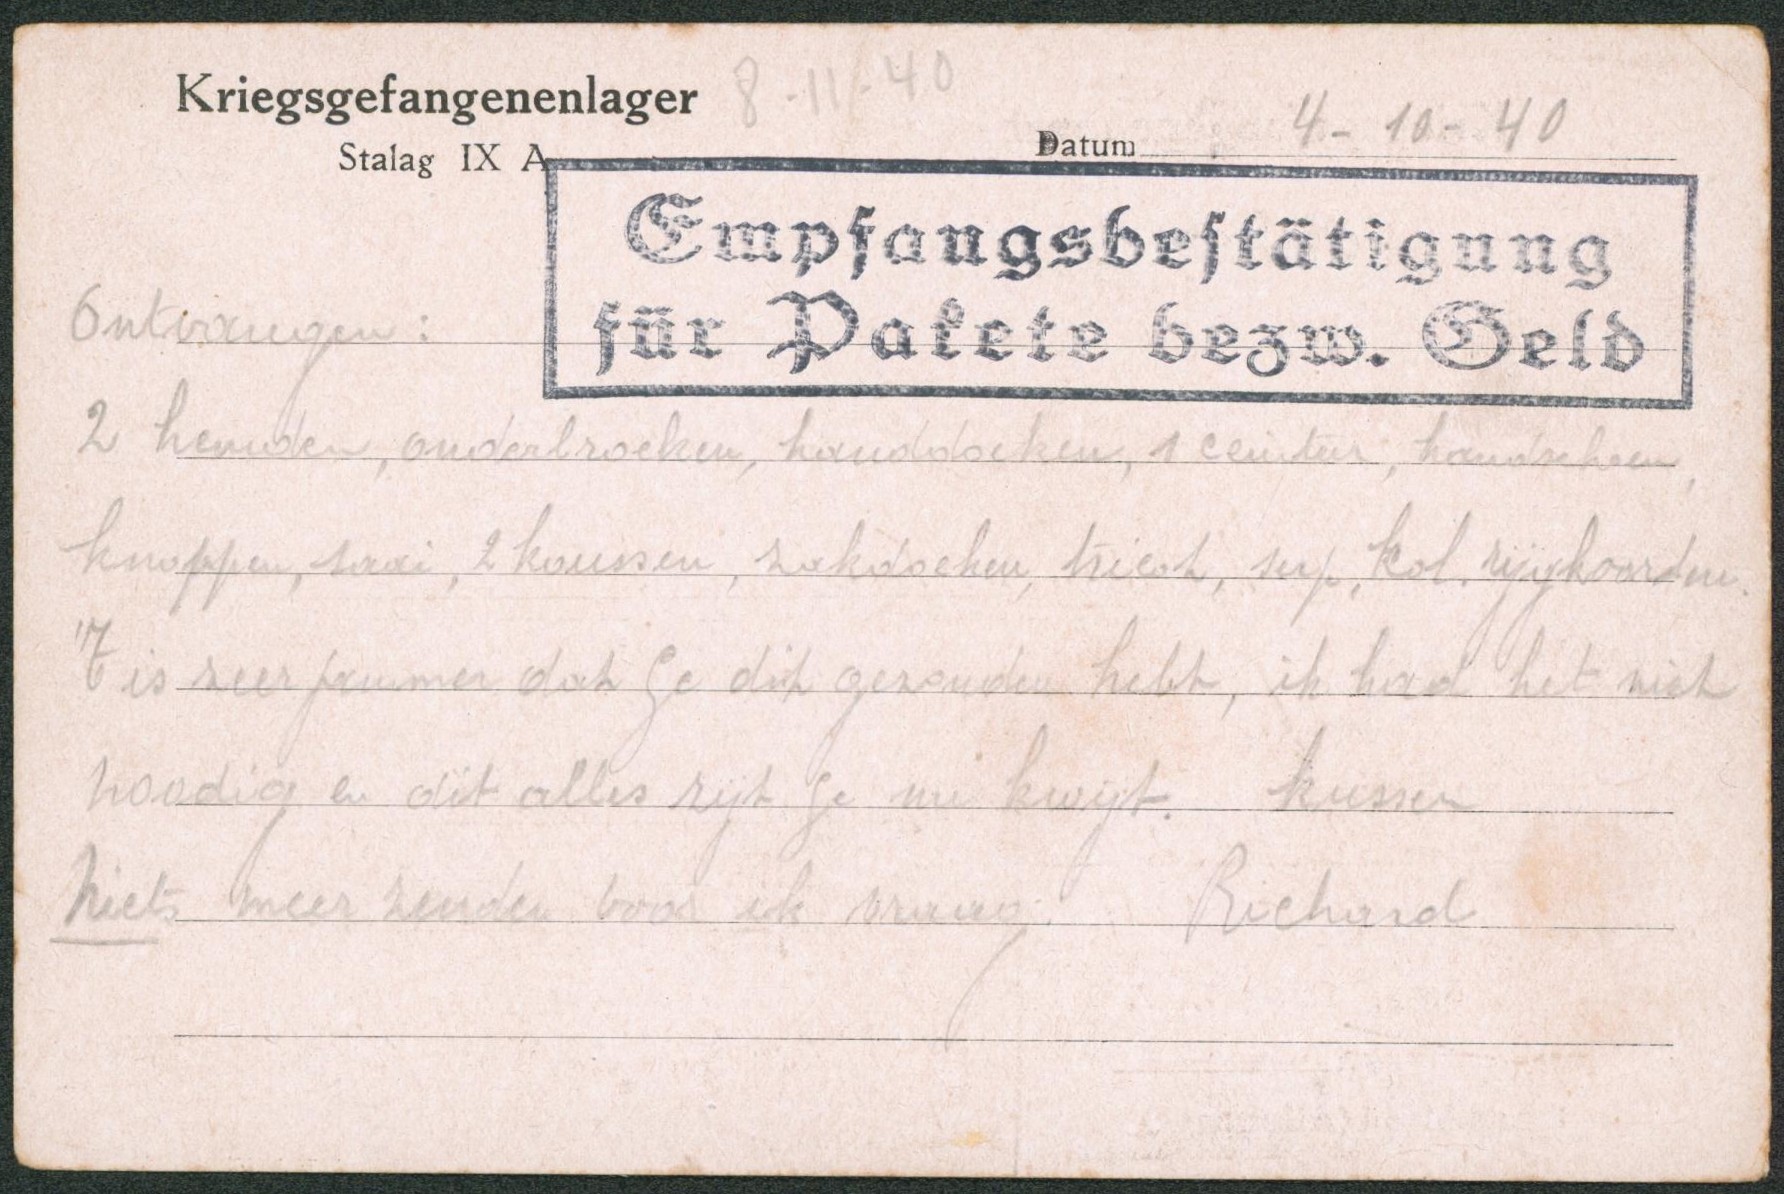 Kriegsgefangenenlager 8-11-40
Stalag IX A
Datum 4-10-40
Empfangsbestätigung
für Pakete bezw. Geld
Ontvangen :
2 hemden, onderbroeken, handdoeken, 1 ceintuur, handschoen,
knoppen, saai, 2 kousen, zakdoeken, tricot, kol. rijgkoorden.
't is zeer jammer dat Ge dit gezonden hebt, ik had het niet
noodig en dit alles zijt Ge nu kwijt. kussen
Niets meer zenden voor ik vraag. Richard